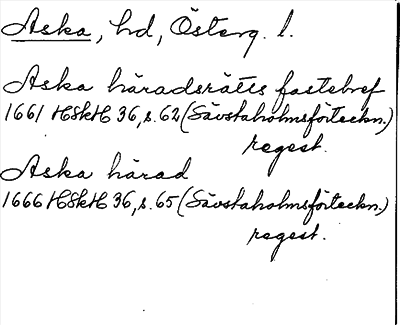 Aska, hd, Österg. l.
Aska häradsrätts fastebref
1661 HSkH 36, s. 62 (Sävstaholmsförteckn.)
regest.
Aska härad
1666 HSkH 36, s. 65 (Sävstaholmsförteckn.)
regest.